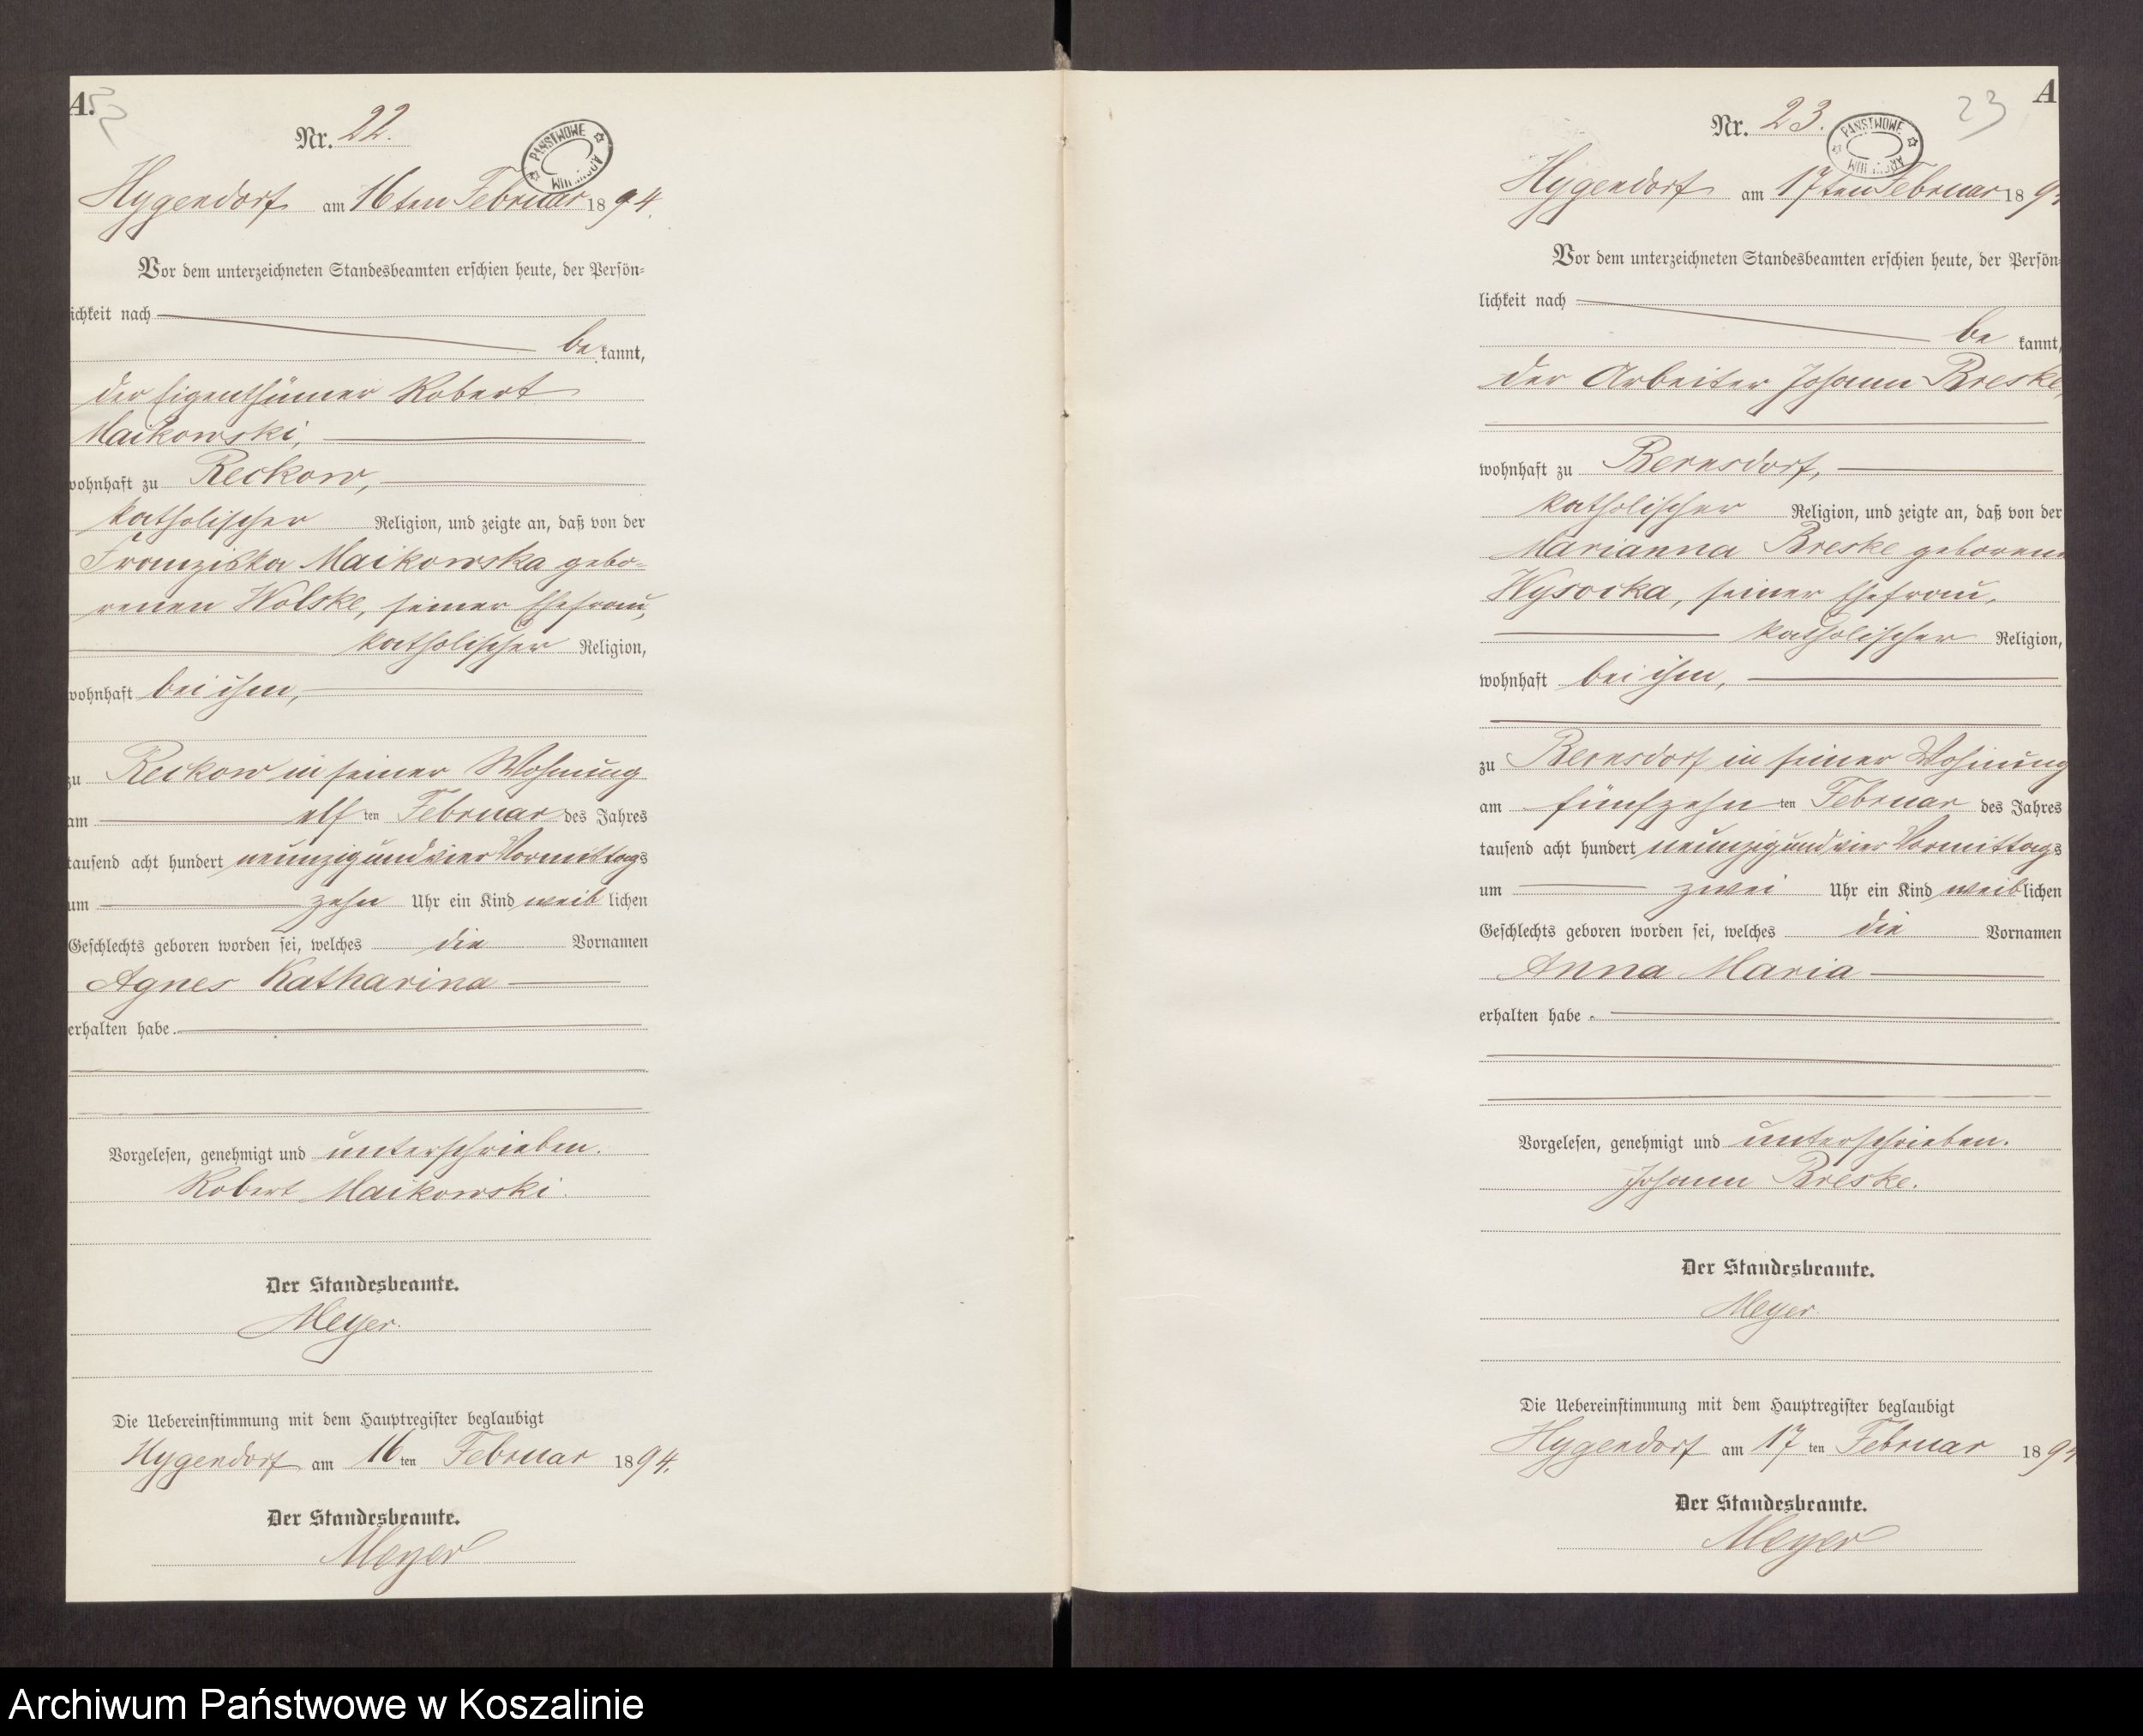 A.
Nr. 22.
PAŃSTWOWE ARCHIWUM
Hygendorf am 16ten Februar 1894.
Vor dem unterzeichneten Standesbeamten erschien heute, der Persön-
ichkeit nach
be kannt,
der Eigenthümer Robert
Maikowski,
wohnhaft zu Reckow,
katholischer Religion, und zeigte an, daß von der
Franziska Maikowska gebo-
renen Wolske, seiner Ehefrau,
katholischer Religion,
wohnhaft bei ihm,
zu Reckow in seiner Wohnung
am elf ten Februar des Jahres
tausend acht hundert neunzig und vier Vormittags
um zehn Uhr ein Kind weib lichen
Geschlechts geboren worden sei, welches die Vornamen
Agnes Katharina
erhalten habe.
Vorgelesen, genehmigt und unterschrieben.
Robert Maikowski.
Der Standesbeamte.
Meyer.
Die Uebereinstimmung mit dem Hauptregister beglaubigt
Hygendorf am 16 ten Februar 1894.
Der Standesbeamte.
Meyer
A
23
Nr. 23.
PAŃSTWOWE ARCHIWUM
Hygendorf am 17ten Februar 189
Vor dem unterzeichneten Standesbeamten erschien heute, der Persön
lichkeit nach
be kannt,
der Arbeiter Johann Breske,
wohnhaft zu Bernsdorf,
katholischer Religion, und zeigte an, daß von der
Marianna Breske geborenen
Wysocka, seiner Ehefrau,
katholischer Religion,
wohnhaft bei ihm,
zu Bernsdorf in seiner Wohnung
am fünfzehn ten Februar des Jahres
tausend acht hundert neunzig und vier Vormittags
um zwei Uhr ein Kind weib lichen
Geschlechts geboren worden sei, welches die Vornamen
Anna Maria
erhalten habe.
Vorgelesen, genehmigt und unterschrieben.
Johann Breske.
Der Standesbeamte.
Meyer.
Die Uebereinstimmung mit dem Hauptregister beglaubigt
Hygendorf am 17 ten Februar 189
Der Standesbeamte.
Meyer
Archiwum Państwowe w Koszalinie